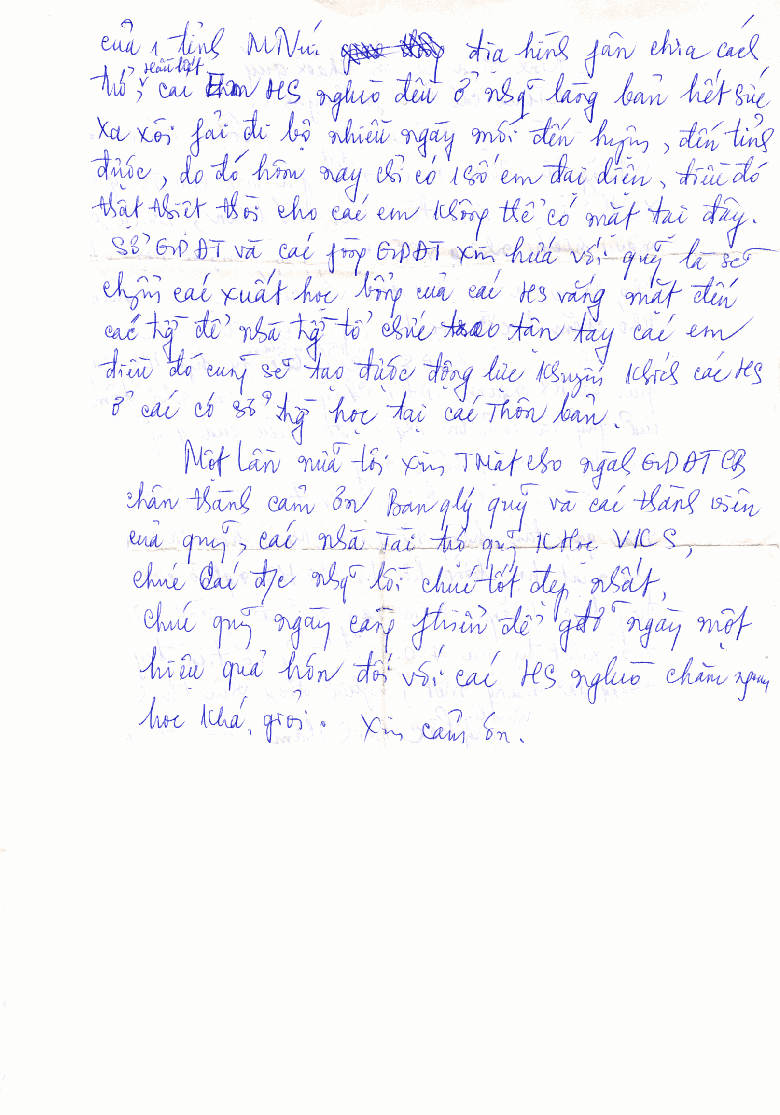 của 1 tỉnh MNúi địa hình fân chia cách
trở, hầu hết các em HS nghèo đều ở nhg~ làng bản hết sức
xa xôi fải đi bộ nhiều ngày mới đến huyện, đến tỉnh
được, do đó hôm nay chỉ có 1 số em đại diện, điều đó
thật thiệt thòi cho các em không thể có mặt tại đây.
Sở GD ĐT và các fòng GDĐT xin hứa với quỹ là sẽ
chuyển các xuất học bổng của các HS vắng mặt đến
các trg` để nhà trg` tổ chức trao tận tay các em
điều đó cũng sẽ tạo được động lực khuyến khích các HS
ở các cơ sở trg` học tại các Thôn bản.
Một lần nữa tôi xin TMặt cho ngành GD ĐT CB
chân thành cảm ơn Ban qlý quỹ và các thành viên
của quỹ, các nhà Tài trợ quỹ KHọc VICS,
chúc các đ/c nhg~ lời chúc tốt đẹp nhất,
chúc quỹ ngày càng fthiển để gđỡ ngày một
hiệu quả hơn đối với các HS nghèo chăm ngoan
học khá, giỏi. Xin cảm ơn.